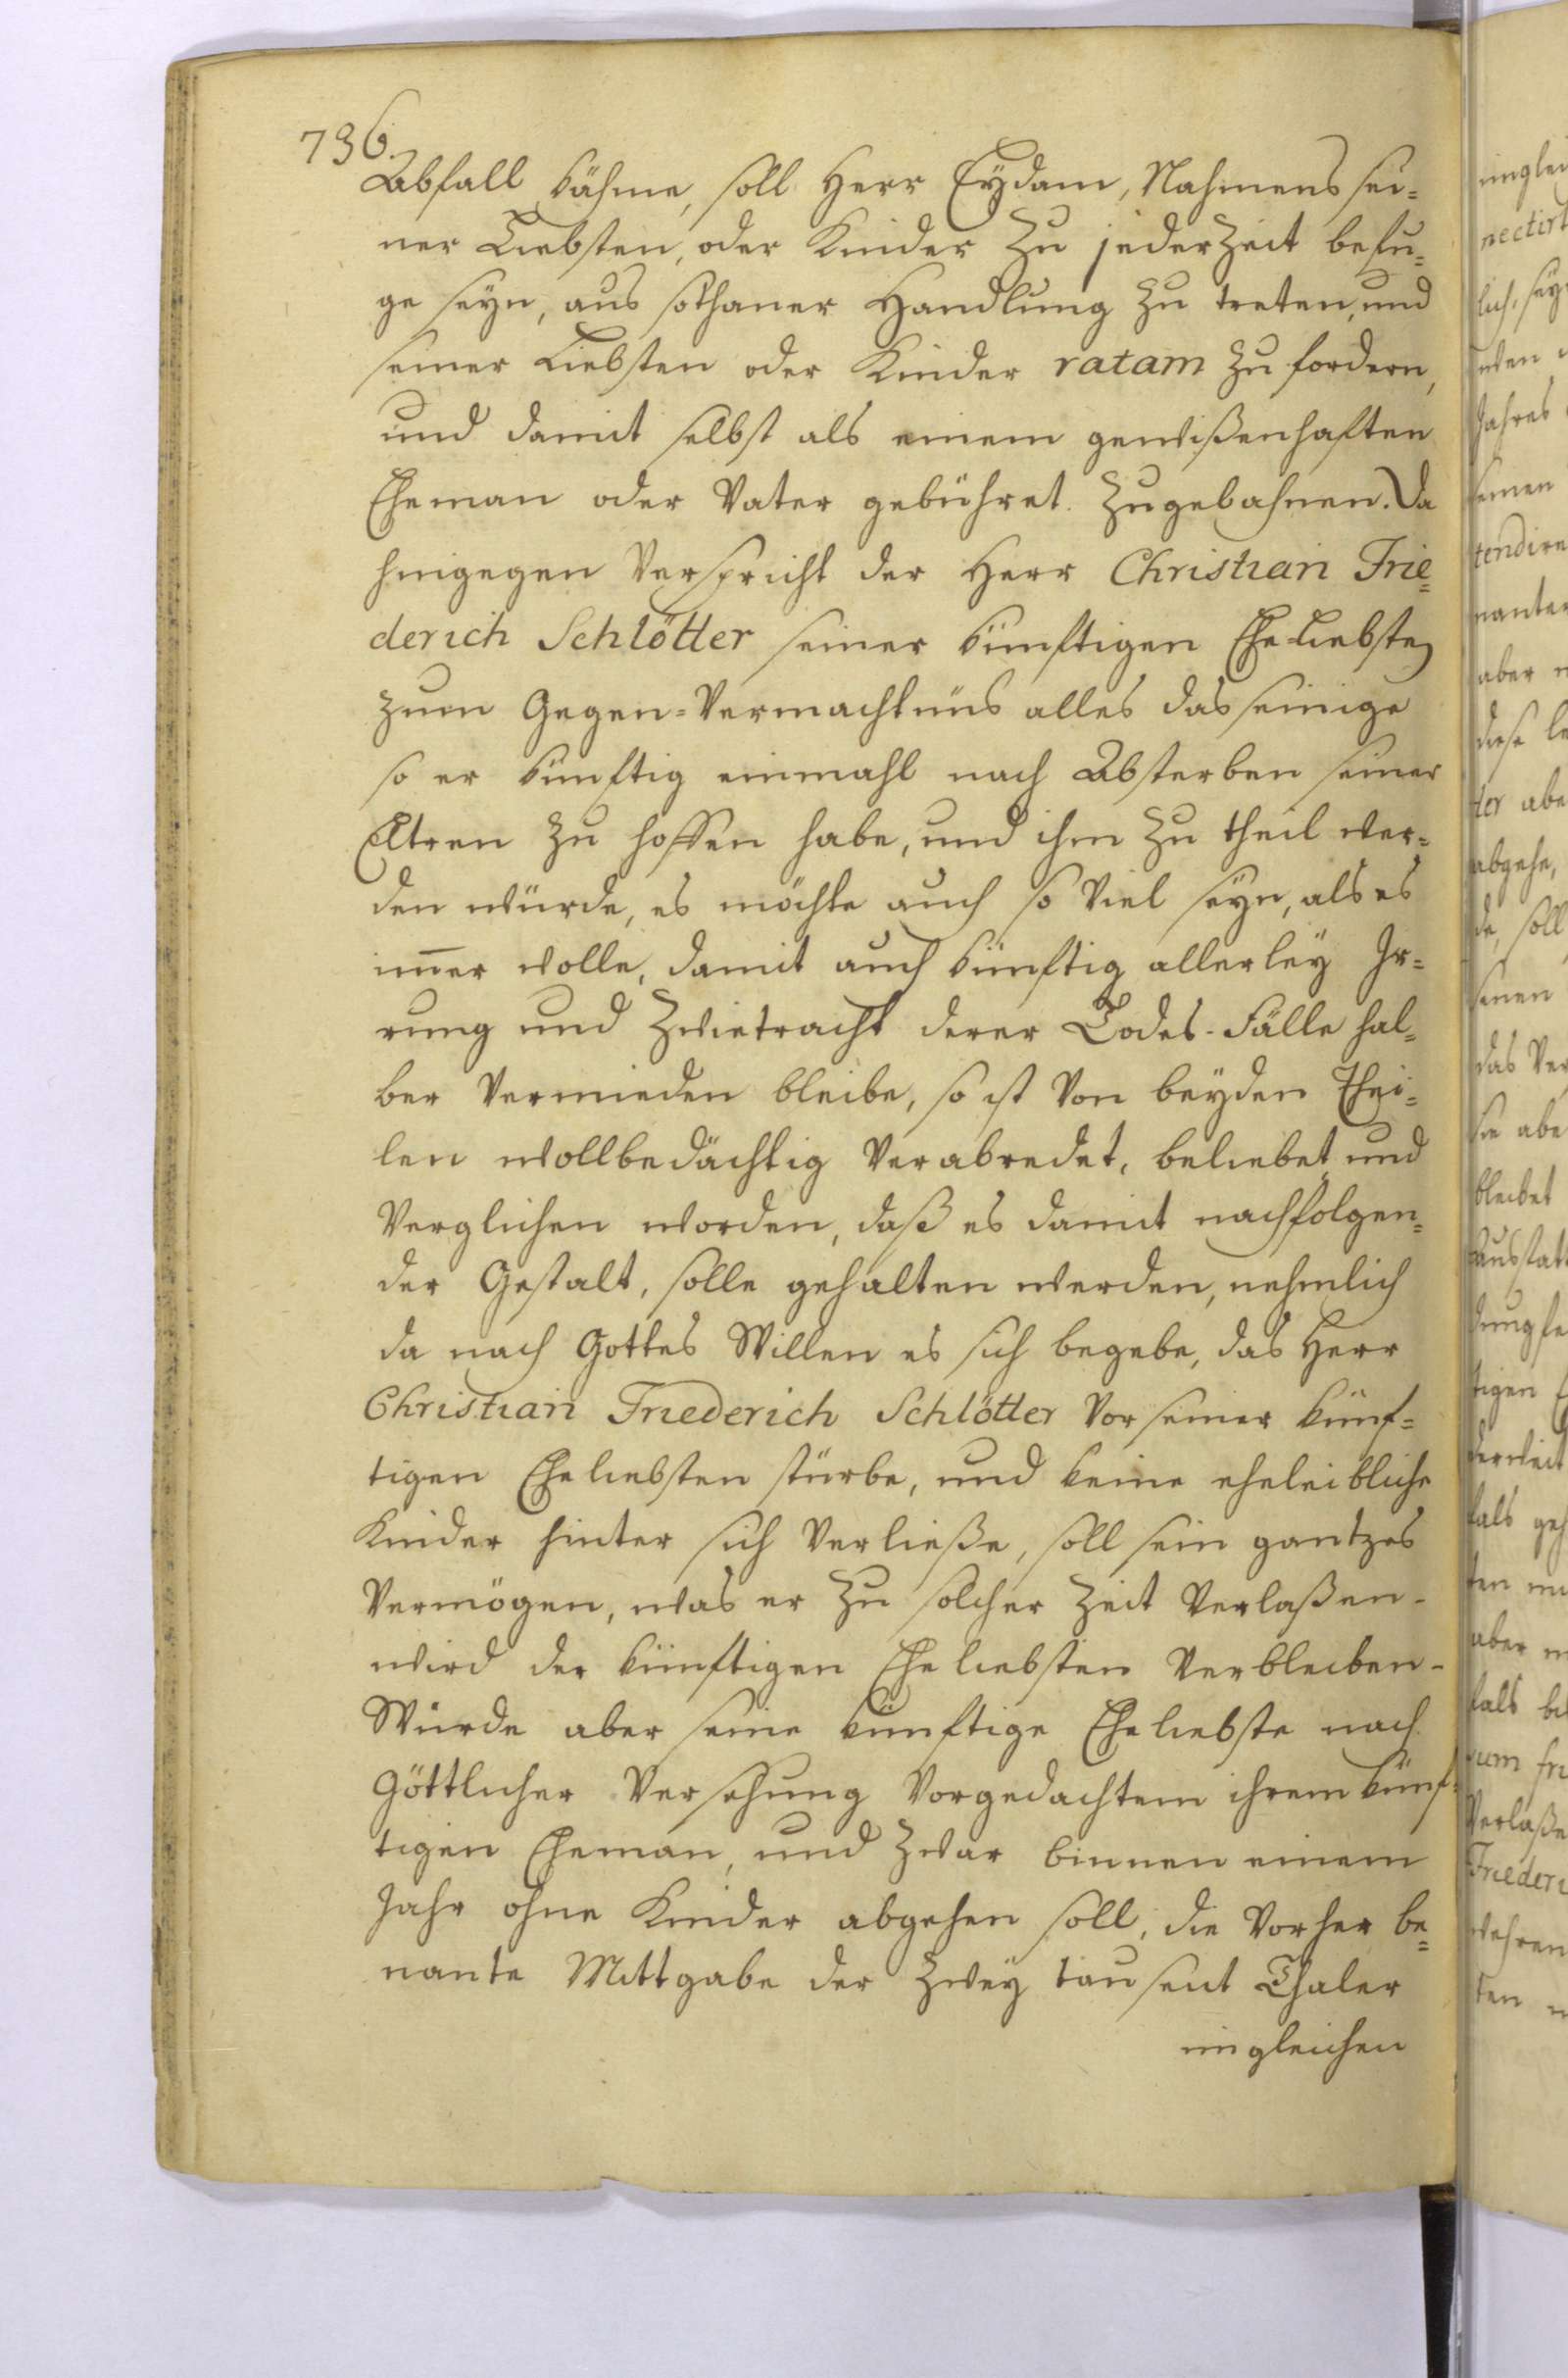 736.
Abfall kähme, soll Herr Eydam, Nahmens sei=
ner Liebsten, oder Kinder zu jederzeit befu=
ge seyn, aus sothaner Handlung zu treten, und
seiner Liebsten oder Kinder ratam zu fordern,
und damit selbst als einem gewißenhaften
Eheman oder Vater gebühret. zugebahren. Da
hingegen verspricht der Herr Christian Frie=
derich Schlötter seiner künftigen Eheliebsten
zum Gegen=Vermachtnüs alles das seinige
so er künftig einmahl nach Absterben seiner
Eltren zu hoffen habe, und ihm zu theil wer=
den würde, es möchte auch so viel seyn, als es
im̄er wolle, damit auch künftig allerley Ir=
rung und Zwietracht derer Todes-Fälle hal=
ber vermieden bleibe, so ist von beyden Thei=
len wollbedächtig verabredet, beliebet und
verglichen worden, daß es damit nachfolgen=
der Gestalt, solle gehalten werden, nehmlich
da nach Gottes Willen es sich begebe, das Herr
Christian Friederich Schlötter vor seiner künf=
tigen Eheliebsten stürbe, und keine eheleibliche
Kinder hinter sich verließe, soll sein gantzes
Vermögen, was er zu solcher Zeit verlaßen-
wird der künftigen Eheliebsten verbleiben-
Würde aber seine künftige Eheliebste nach
Göttlicher Versehung vorgedachtem ihrem künf=
tigen Eheman, und zwar binnen einem
Jahr ohne Kinder abgehen soll, die vorher be=
nante Mittgabe der zwey tausent Thaler
imgleichen